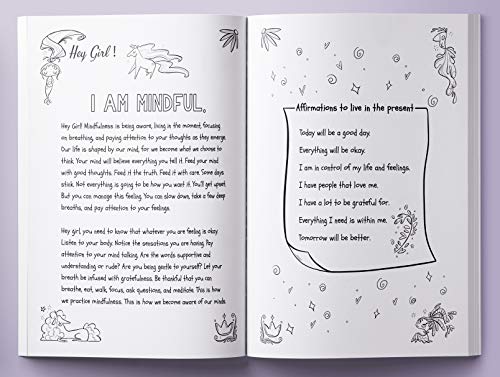 Hey Girl!
I AM MINDFUL.
Hey Girl! Mindfulness is being aware, living in the moment, focusing
on breathing, and paying attention to your thoughts as they emerge.
Our life is shaped by our mind, for we become what we choose to
think. Your mind will believe everything you tell it. Feed your mind
with good thoughts. Feed it the truth. Feed it with care. Some days
stick. Not everything is going to be how you want it. You'll get upset.
But you can manage this feeling. You can slow down, take a few deep
breaths, and pay attention to your feelings.
Hey girl, you need to know that whatever you are feeling is okay.
Listen to your body. Notice the sensations you are having. Pay
attention to your mind talking. Are the words supportive and
understanding or rude? Are you being gentle to yourself? Let your
breath be infused with gratefulness. Be thankful that you can
breathe, eat, walk, focus, ask questions, and meditate. This is how
we practice mindfulness. This is how we become aware of our minds.
Affirmations to live in the present
Today will be a good day.
Everything will be okay.
I am in control of my life and feelings.
I have people that love me.
I have a lot to be grateful for.
Everything I need is within me.
Tomorrow will be better.